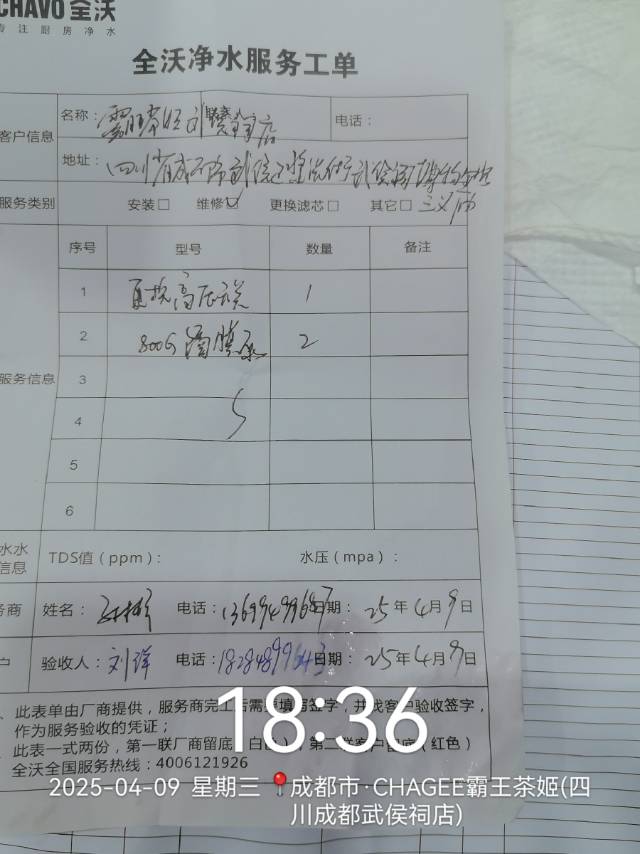 CHAVO 全沃
专注厨房净水
全沃净水服务工单
客户信息 名称： 店 电话：
地址：四川省成都市
服务类别 安装□ 维修☑ 更换滤芯□ 其它□ 三义庙
服务信息
序号 型号 数量 备注
1 更换高压 1
2 800G 隔膜泵 2
3
4
5
6
水水
信息 TDS值（ppm）： 水压（mpa）：
务商 姓名： 电话： 日期：25年4月9日
户 验收人：刘洋 电话： 日期：25年4月9日
、此表单由厂商提供，服务商完工后需填写签字，并找客户验收签字，
作为服务验收的凭证；
此表一式两份，第一联厂商留底（白色），第二联客户留底（红色）
全沃全国服务热线：4006121926
18:36
2025-04-09 星期三 成都市·CHAGEE霸王茶姬(四
川成都武侯祠店)